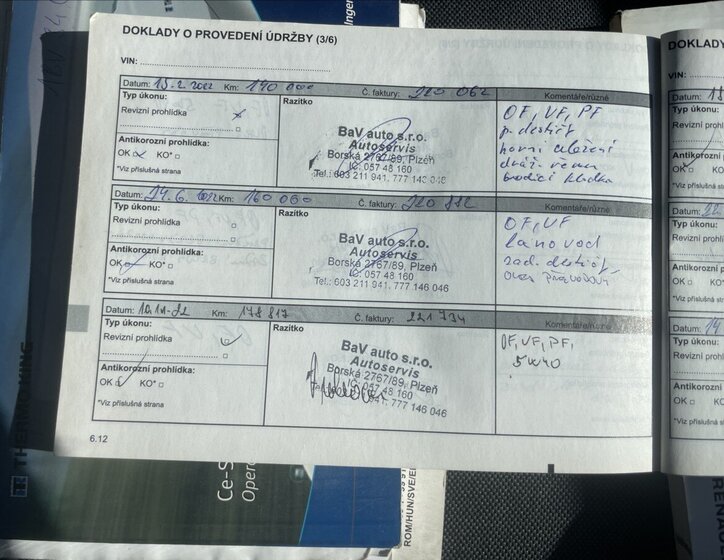 DOKLADY O PROVEDENÍ ÚDRŽBY (3/6)
VIN:
Datum: 15.2.2022 Km: 140 000 Č. faktury: 220 062 Komentáře/různé
Typ úkonu:
Revizní prohlídka
Antikorozní prohlídka:
OK KO*
*Viz příslušná strana
Razítko
BaV auto s.r.o.
Autoservis
Borská 2767/89, Plzeň
IČ: 057 48 160
Tel.: 603 211 941, 777 146 046
OF, VF, PF
p. destičky
horní
Datum: 24.6.2022 Km: 160 000 Č. faktury: 220 Komentáře/různé
Typ úkonu:
Revizní prohlídka
Antikorozní prohlídka:
OK KO*
*Viz příslušná strana
Razítko
BaV auto s.r.o.
Autoservis
Borská 2767/89, Plzeň
IČ: 057 48 160
Tel.: 603 211 941, 777 146 046
OF, VF
zad. destičk
Datum: 10.11.22 Km: 178 817 Č. faktury: 221 734 Komentáře/různé
Typ úkonu:
Revizní prohlídka
Antikorozní prohlídka:
OK KO*
*Viz příslušná strana
Razítko
BaV auto s.r.o.
Autoservis
Borská 2767/89, Plzeň
IČ: 057 48 160
941, 777 146 046
OF, VF, PF,
5W40
6.12
DOKLADY
VIN:
Datum:
Typ úkonu:
Revizní
Antikorozní
OK KO
*Viz příslušná
Datum:
Typ úkonu:
Revizní
Antikorozní
OK KO
*Viz příslušná
Datum: 14
Typ úkonu:
Revizní
Antikorozní
OK KO
*Viz příslušná
THERMO KING
Ce-S
Opera
ROM/HUN/SVE/E